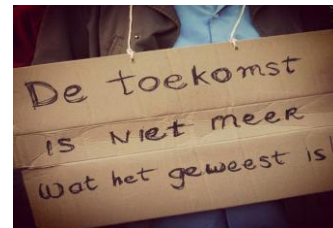 De toekomst
is niet meer
wat het geweest is!